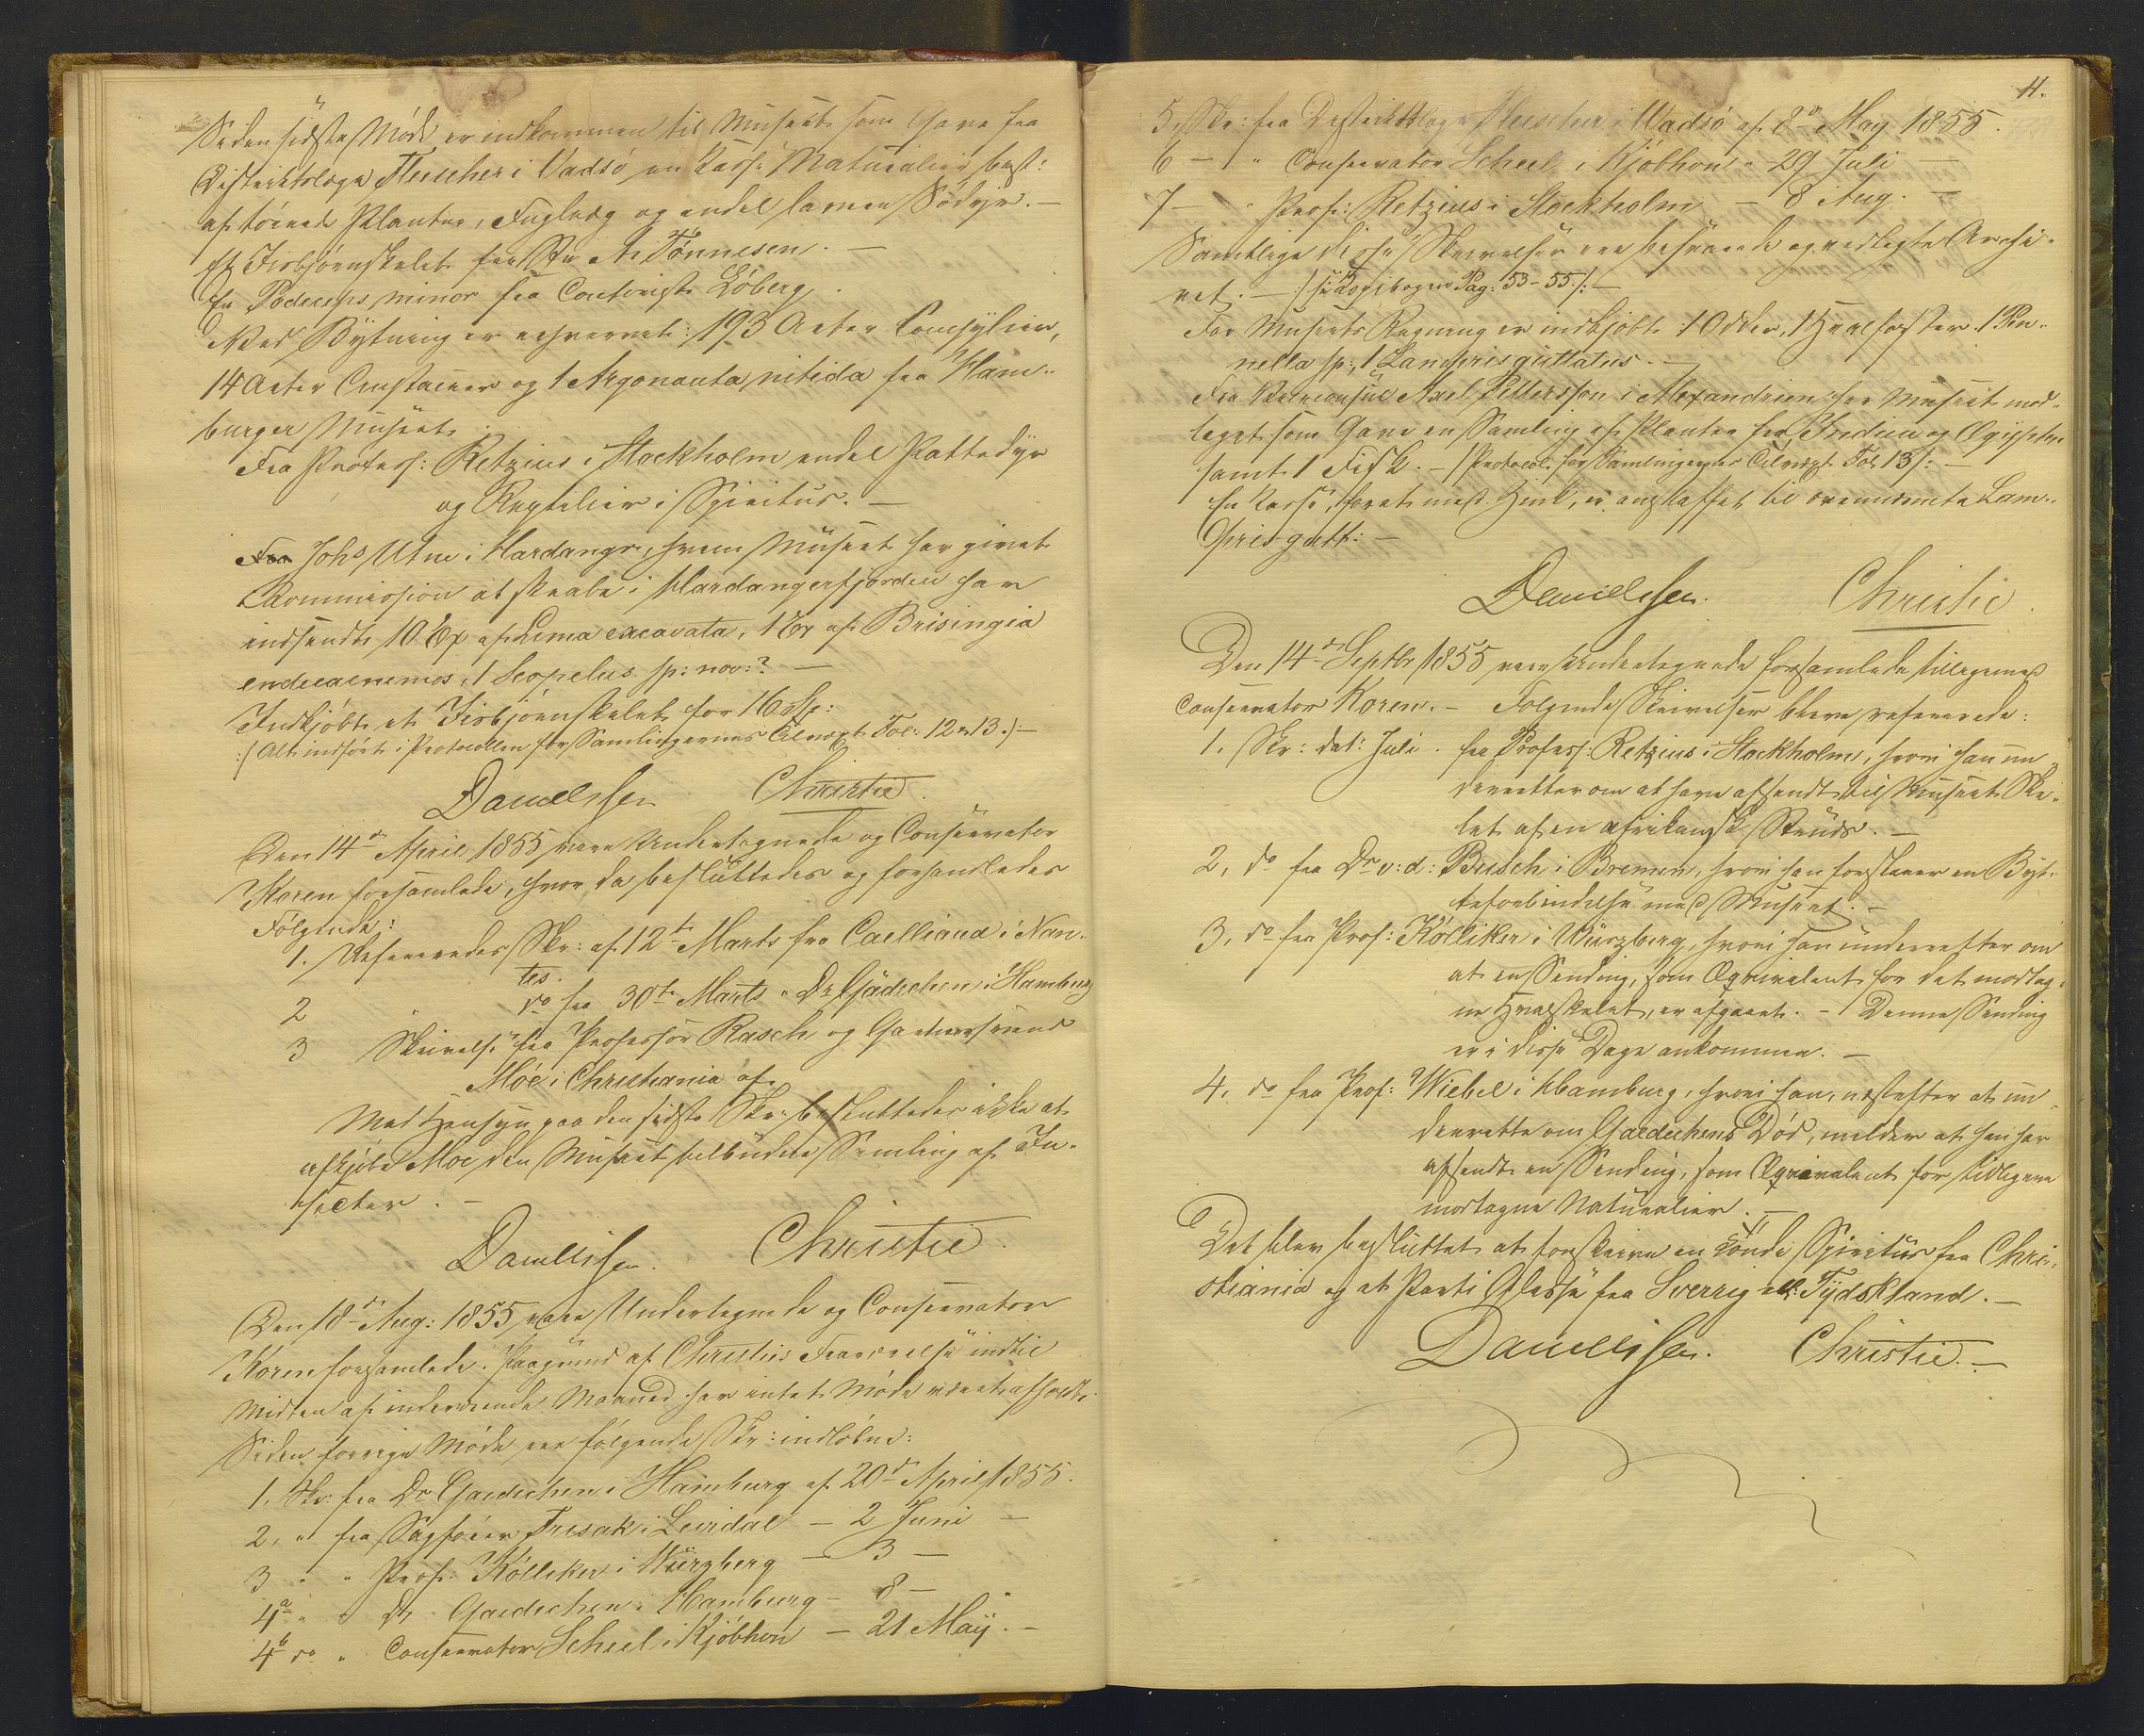 Siden sidste Møde er indkommen til Museet som Gave fra
Distriktslæge Fleischer i Vadsö en Kasse Naturalier best:
af tørrede Planter, Fugleæg og endel lavere Södyr. —
Et Isbjørnskelet fra  A. Tönnesen. —
En Podiceps minor fra Contorist Löberg.
Ved Bytning er erhvervet: 193 Arter Conchylier,
14 Arter Crustaceer og 1 Argonauta nitida fra Ham-
burger Museet.
Fra Profess: Retzius i Stockholm endel Pattedyr
og Reptilier i Spiritus. —
Johs Utne i Hardanger, hvem Museet har givet
Kommission at skrabe i Hardangerfjorden har
indsendt 10 Ex af Lima excavata, 1 Ex af Brisingia
endecacnemos, 1 Scopelus sp: nov:? —
Indkjöbt et Isbjörnskelet for 16 Sp:
:/ Alt indført i Protocollen for Samlingernes Tilvæxt Fol: 12 & 13 /: —
Danielssen Christie.
Den 14de April 1855 vare Undertegnede og Conservator
Koren forsamlede, hvor da besluttedes og forhandledes
Følgende:
1. Refereredes Skr: af 12te Marts fra Cailliaud i Nan-
tes.
2 do fra 30te Marts " Dr Gädechen i Hamburg
3 Skrivelse fra Professor Rasch og
Moe i Christiania af
Med Hensyn paa den sidste Skr: besluttedes ikke at
afkjøbe Moe den Museet tilbudne Samling af In-
secter. —
Danielssen. Christie.
Den 18de Aug: 1855 vare Undertegnede og Conservator
Koren forsamlede. Paagrund af Christies Fraværelse indtil
Midten af indeværende Maaned har intet Møde været afholdt.
Siden forrige Møde ere følgende Skr: indløbne:
1. Skr: fra Dr Gaedechen i Hamburg af 20de April 1855.
2, " fra Sagfører Tresak i Leirdal — 2 Juni —
3 " " Prof: Kölliker i Würzberg — 3 —
4a " " Dr Gaedechen i Hamburg — 8 —
4b do " Conservator Scheel i Kjöbhvn — 21 May. —
11.
5, Skr: fra Distriktslæge Fleischer i Vadsö af 8de May 1855.
6 — " Conservator Scheel i Kjöbhvn " 29 Juli —
7 — " Prof: Retzius i Stockholm — 8 Aug. —
Samtlige disse Skrivelser ere besvarede og vedlagte Archi-
vet. — :/ se Kopibogen Pag: 53-55 /: —
For Museets Regning er indkjøbt 1 Odder, 1 Hvalfoster, 1 Pen-
nella sp:, 1 Lampris guttatus. —
Fra Viceconsul Axel Pettersson i Alexandrien har Museet mod-
taget som Gave en Samling af Planter fra Indien og Ægypten
samt 1 Fisk. — :/ Protocol for Samlingernes Tilvæxt Fol 13 /: —
En Kasse, foret med Zink, er anskaffet til ovennævnte Lam-
pris gutt: —
Danielssen. Christie.
Den 14de Septbr 1855 vare Undertegnede forsamlede tilligemed
Conservator Koren. — Følgende Skrivelser bleve refererede:
1. Skr: dat: Juli. fra Profess: Retzius i Stockholm, hvori han un-
derretter om at have afsendt til Museet Ske-
let af en afrikansk Struds. —
2, do fra Dr v: d: Busch i Bremen, hvori han foreslaaer en Byt-
teforbindelse med Museet. —
3, do fra Prof: Kölliker i Würzberg, hvori han underretter om
at en Sending, som Æqvivalent for det modtag-
ne Hvalskelet, er afgaaet. — Denne Sending
er i disse Dage ankommen. —
4, do fra Prof: Wiebel i Hamburg, hvori han, næstefter at un-
derrette om Gaedechens Död, melder at han har
afsendt en Sending, som Æqvivalent for tidligere
modtagne Naturalier. —
Det blev besluttet at forskrive en Tønde Spiritus fra Chri-
stiania og et Parti Glasse fra Sverrig ell: Tydskland. —
Danielssen. Christie. —